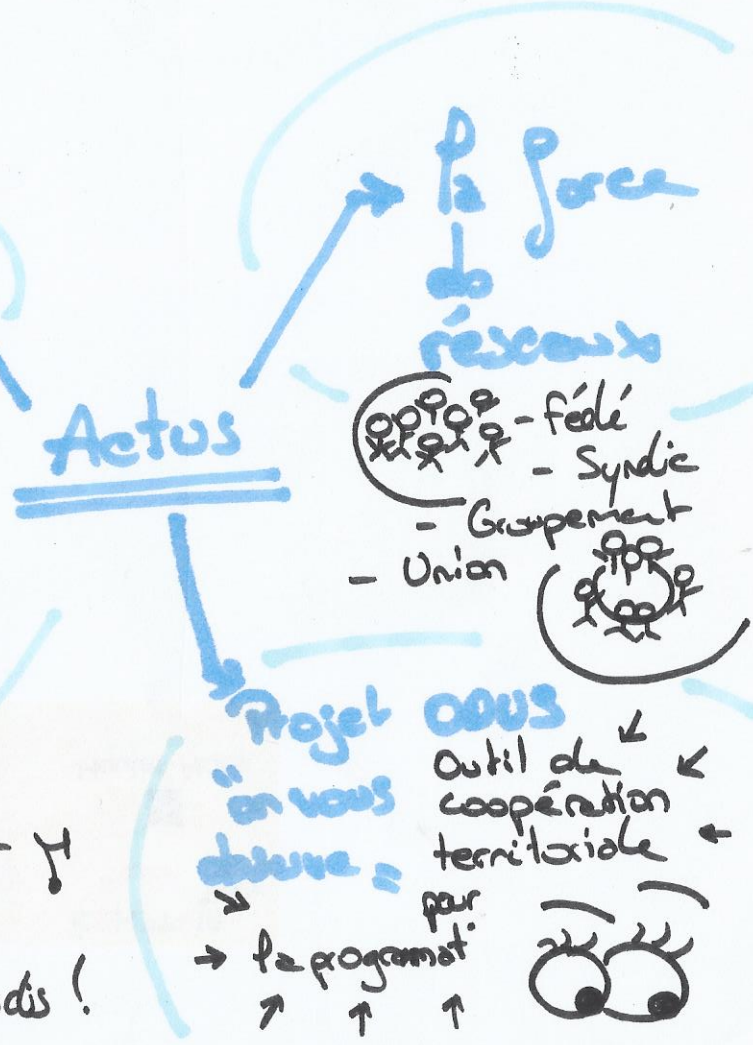 la force
de
réseaux
Actus
- Fédé
- Syndic
- Groupement
- Union
Projet ODUS
"on vous
observe"
Outil de
coopération
territoriale
pour
la programmat°
dis !